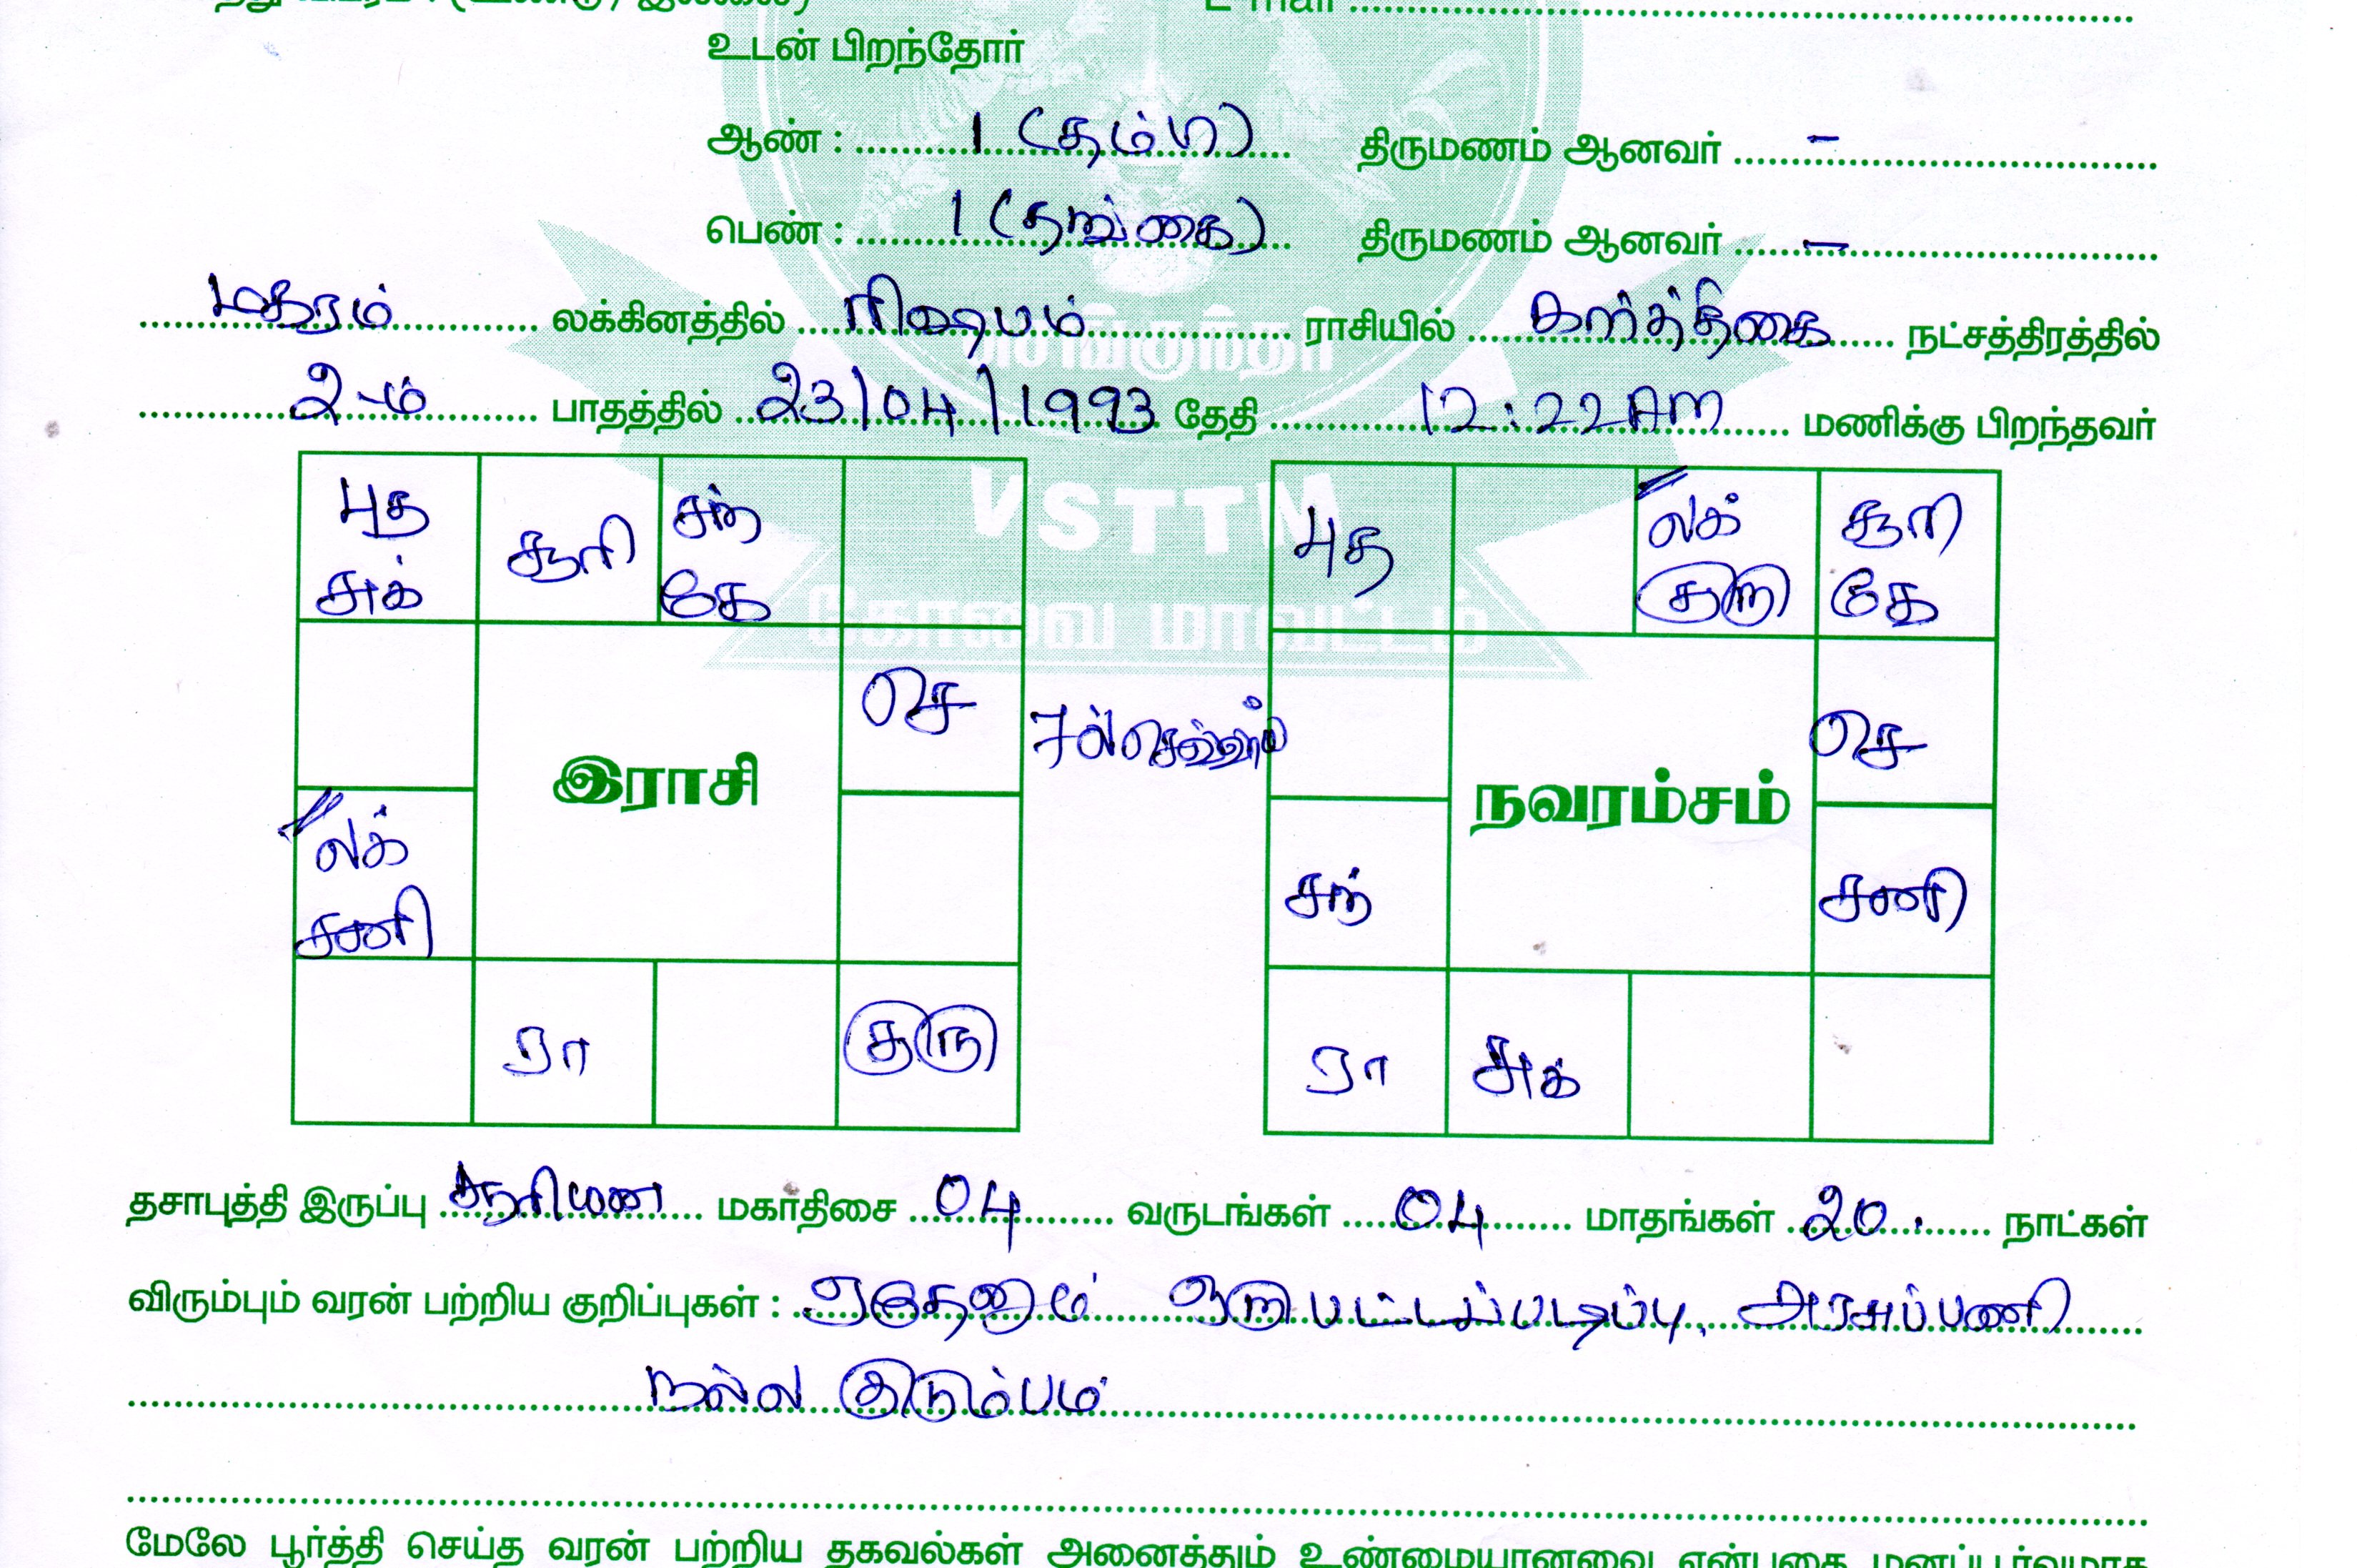 E-mail
உடன் பிறந்தோர்
ஆண் : 1 (தம்பி) திருமணம் ஆனவர் –
பெண் : 1 (தங்கை) திருமணம் ஆனவர் –
மகரம் லக்கினத்தில் ரிஷபம் ராசியில் கார்த்திகை நட்சத்திரத்தில்
2-ம் பாதத்தில் 23/04/1993 தேதி 12:22AM மணிக்கு பிறந்தவர்
செங்குந்தர்
VSTTM
கோவை மாவட்டம்
புத சூரி சந்
சுக் கே
செ
7ல் செவ்வாய்
இராசி
லக்
சனி
ரா குரு
புத லக் சூரி
குரு கே
செ
நவரம்சம்
சந் சனி
ரா சுக்
தசாபுத்தி இருப்பு சூரியன் மகாதிசை 04 வருடங்கள் 04 மாதங்கள் 20. நாட்கள்
விரும்பும் வரன் பற்றிய குறிப்புகள் : ஏதேனும் ஒரு பட்டப்படிப்பு, அரசுப்பணி
நல்ல குடும்பம்
மேலே பூர்த்தி செய்த வரன் பற்றிய தகவல்கள் அனைத்தும் உண்மையானவை என்பதை மனப்பூர்வமாக